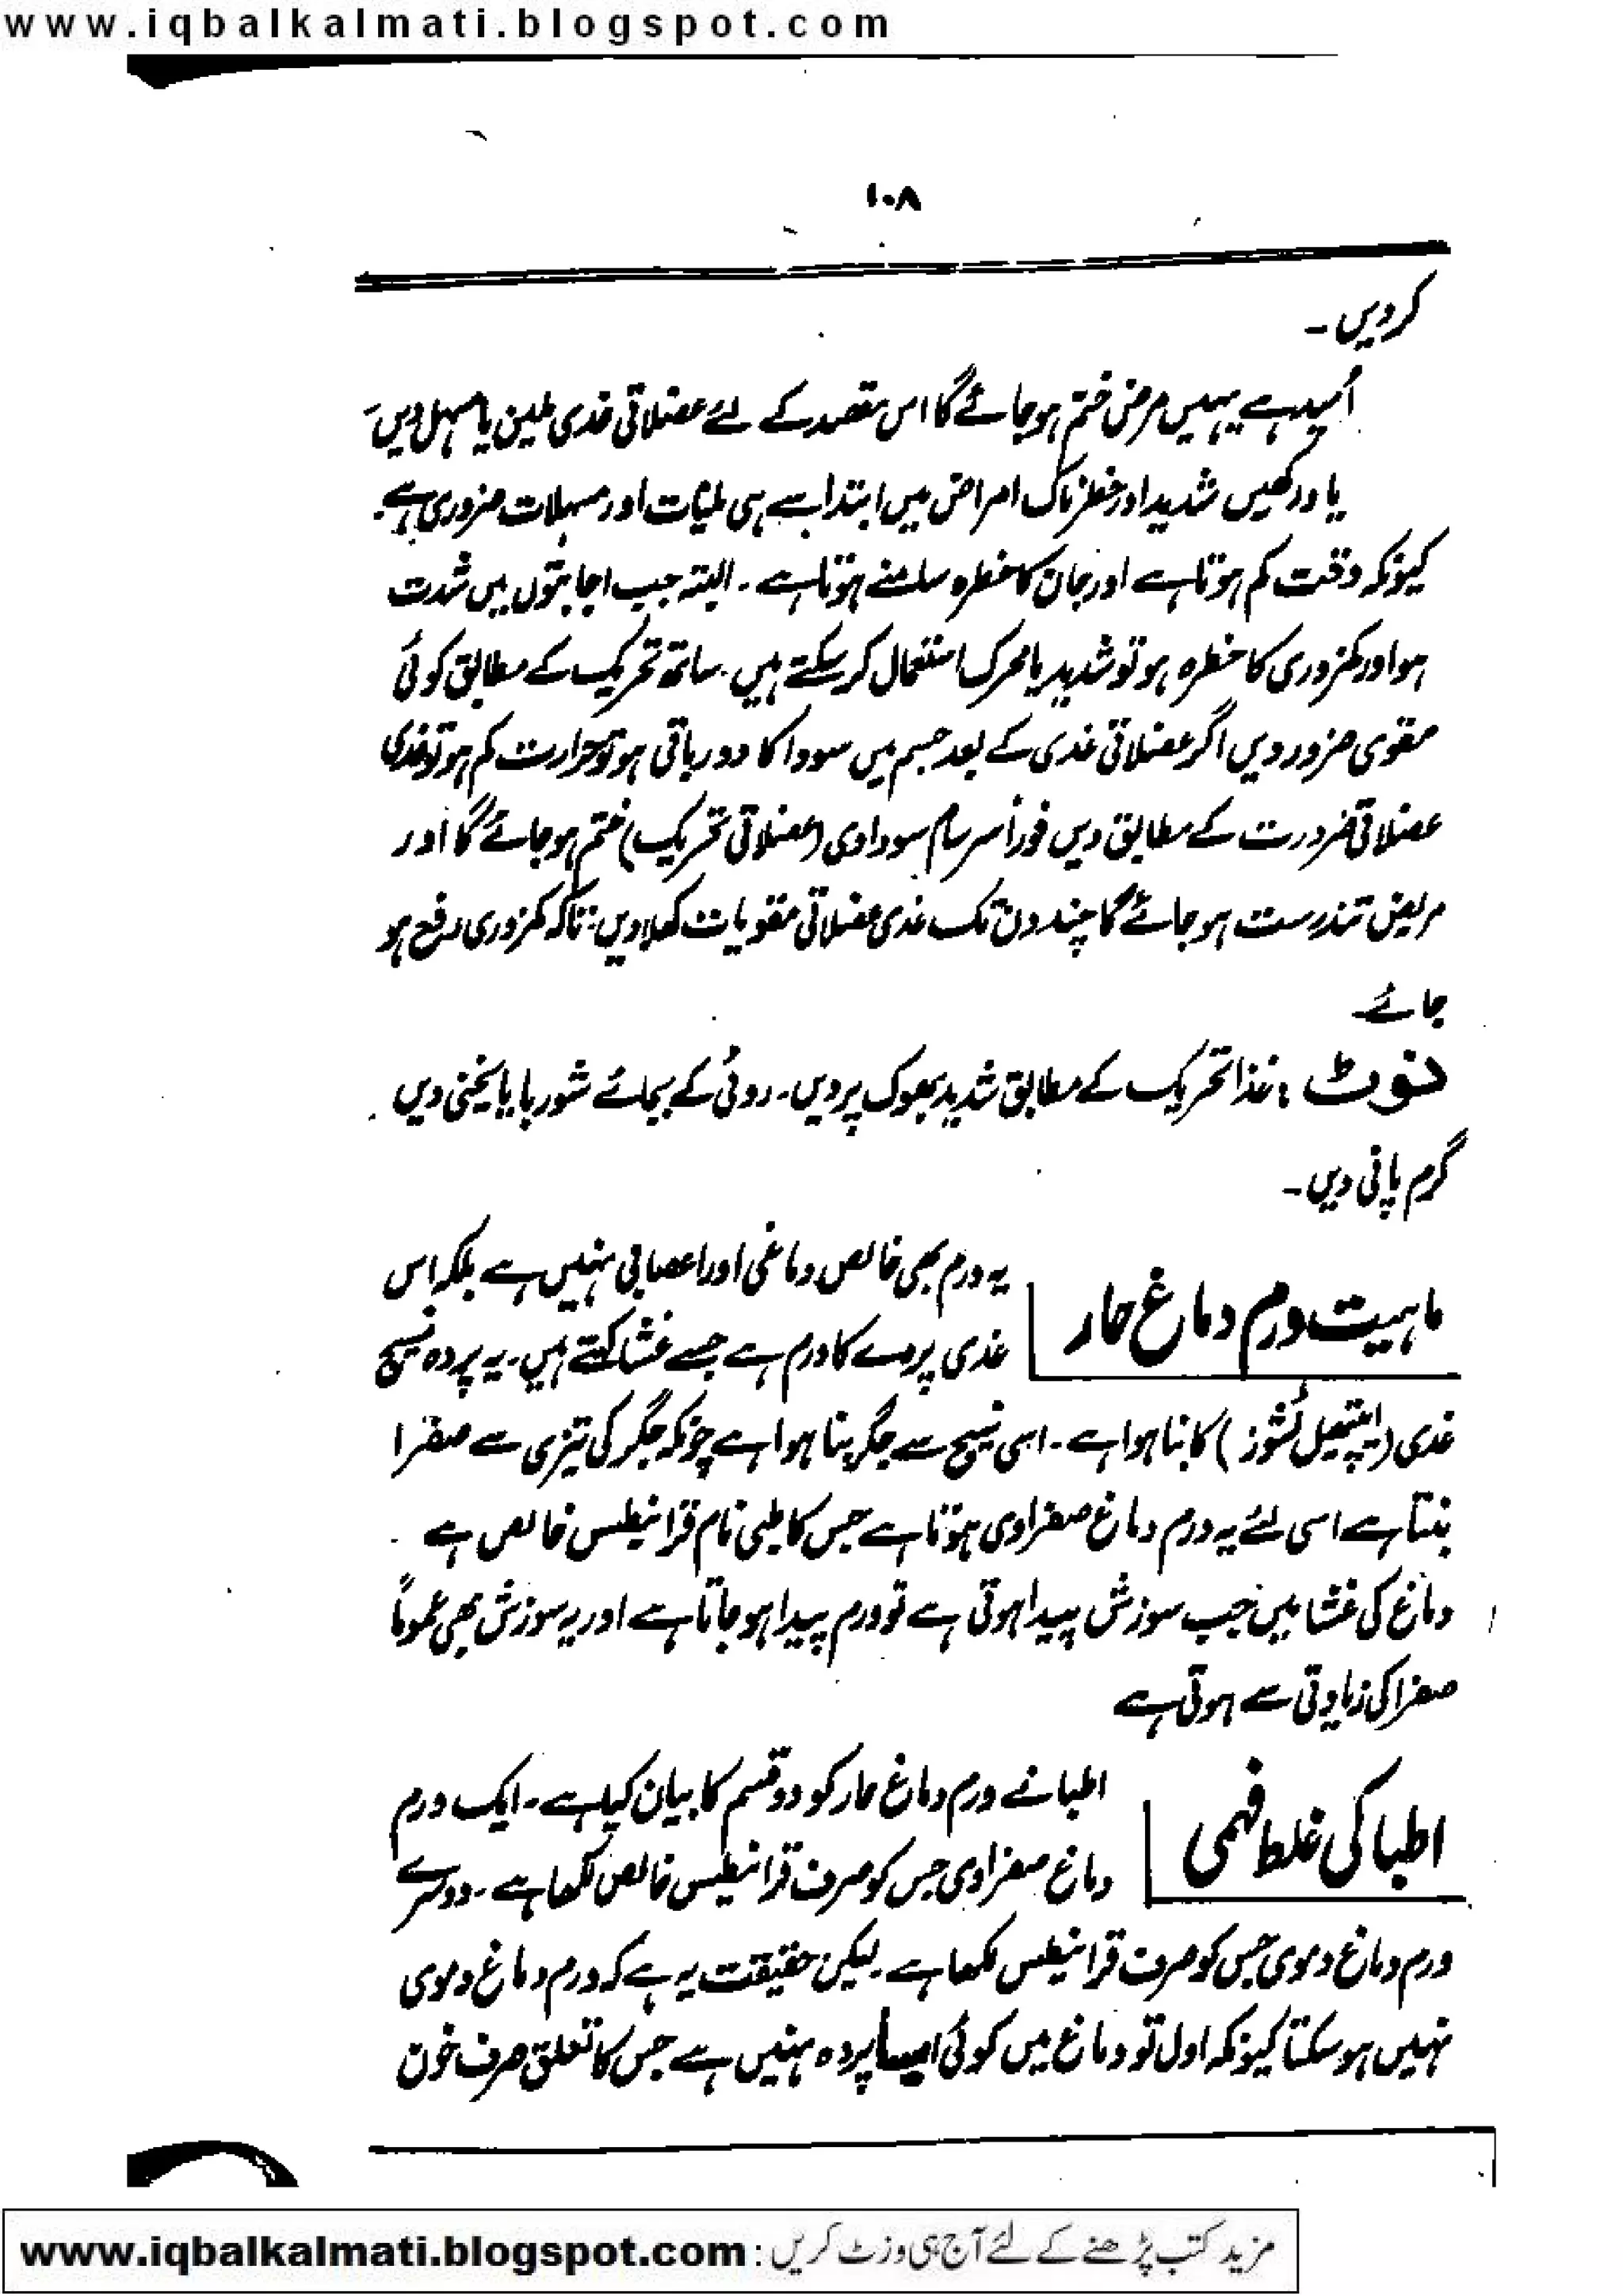 www.iqbalkalmati.blogspot.com
۱۰۸
کر دیں۔
اُمید ہے یہیں مرض ختم ہو جائے گا اس مقصد کے لئے عضلاتی غدی ملین یا مسہل دیں
یاد رکھیں شدید اور خطرناک امراض میں ابتدا سے ہی ملینات اور مسہلات ضروری ہے۔
کیونکہ وقت کم ہوتا ہے اور جان کا خطرہ سامنے ہوتا ہے۔ البتہ جب اجابتوں میں شدت
ہو اور کمزوری کا خطرہ ہو تو شدید یا محرک استعمال کر سکتے ہیں۔ ساتھ تحریک کے مطابق کوئی
مقوی ضرور دیں اگر عضلاتی غدی کے بعد جسم میں سودا کا دور باقی ہو تو حرارت کم ہو تو غدی
عضلاتی ضرورت کے مطابق دیں فوراً سرسام سوداوی (عضلاتی تحریک) ختم ہو جائے گا اور
مریض تندرست ہو جائے گا چند دن تک غدی عضلاتی مقویات کھلا دیں۔ تاکہ کمزوری رفع ہو
جائے
نوٹ: غذا تحریک کے مطابق شدید بھوک پر دیں۔ روٹی کے بجائے شوربا یا یخنی دیں
گرم پانی دیں۔
ماہیت ورم دماغ حار
یہ ورم بھی خالص دماغی اور اعصابی نہیں ہے بلکہ اس
غدی پردے کا ورم ہے جسے غشا کہتے ہیں۔ یہ پردہ نسیج
غدی (اپیتھیل ٹشوز) کا بنا ہوا ہے۔ اسی نسیج سے جگر بنا ہوا ہے چونکہ جگر کی تیزی سے صفرا
بنتا ہے اسی لئے یہ ورم دماغ صفراوی ہوتا ہے جس کا طبی نام قرانیطس خالص ہے
دماغ کی غشا میں جب سوزش پیدا ہوتی ہے تو ورم پیدا ہو جاتا ہے اور یہ سوزش بھی عموماً
صفرا کی زیادتی سے ہوتی ہے
اطبا کی غلط فہمی
اطبا نے ورم دماغ حار کو دو قسم کا بیان کیا ہے۔ ایک ورم
دماغ صفراوی جس کو صرف قرانیطیس خالص لکھا ہے۔ دوسرے
ورم دماغ دموی جس کو صرف قرانیطس لکھا ہے۔ لیکن حقیقت یہ ہے کہ ورم دماغ دموی
نہیں ہو سکتا کیونکہ اول تو دماغ میں کوئی ایسا پردہ نہیں ہے جس کا تعلق صرف خون
مزید کتب پڑھنے کے لئے آج ہی وزٹ کریں : www.iqbalkalmati.blogspot.com